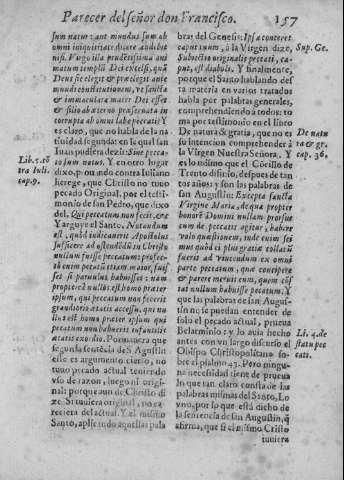 Parecer del señor don Francisco. 157
sum natur: ant mundus sum ab
omni iniquitate dicere audebit
nisi Virgo illa prudẽtissima ani
matum templũ Dei excelsi, quã
Deus sic elegit & præelegit ante
mundi constitutionem, vt sancta
& immaculata mater Dei esset
& filio ab æterno præseruata in
corrupta ab omni labe peccati? Y
es claro, que no habla de la na
tiuidad segunda: en la qual san
Iuan pudiera dezir: Sine pecca-
to sum natus. Y en otro lugar
dixo, contra Iuliano
herege, que Christo no tuuo
pecado Original, por el testi
monio de san Pedro, que dixo
del, Qui peccatum non fecit, &c
Y arguye el Santo, Notandum
est, quòd iudicauerit Apostolus
sufficere ad ostendẽdũ in Christo
nullum fuisse peccatum: profec-
tò enim peccatũ etiam maior, fuis
set si paruulus habuisset: nam
propterea nullus est homo præter
ipsum, qui peccatum non fecerit
grandioris ætatis accessu, qui nu
llus est homo præter ipsum qui
peccatum non habuerit infantilis
ætatis exordio. Por manera que
segun la sentẽcia de S. Agustin
este es argumento cierto, no
tuuo pecado actual teniendo
vso de razon, luego ni origi
nal: porque aun de Christo di
ze. Si tuuiera original, no ca-
reciera del actual. Y el mismo
Santo, aplicando aquellas pala
bras del Genesis: Ipsa conteret
caput tuum, à la Virgen dize,
Subiectio originalis peccati, ca-
put, est diaboli. Y finalmente,
porque el Santo hablando des
ta materia en varios tratados
habla por palabras generales,
comprehendiendo à todos: to
ma por testimonio en el libro
De natura & gratia, que no es
su intencion comprehender à
la Virgen Nuestra Señora. Y
es lo mismo que el Cõcilio de
Trento difinio, despues de tan
tos años: y son las palabras de
san Augustin: Excepta sancta
Virgine Maria, de qua propter
honorẽ Domini nullam prorsus
cum de peccatis agitur, habere
volo quæstionem, inde enim sci
mus quòd ei plus gratiæ collatũ
fuerit ad vincendum ex omni
parte peccatum, quæ concipere
& parere meruit eum, quem cõs
tat nullum habuisse peccatum. Y
que las palabras de san Augus-
tin no se puedan entender de
solo el pecado actual, prueua
Belarminio: y lo auia hecho
antes con vn largo discurso el
Obispo Christopolitano so-
bre el psalmo 43. Pero ningu-
na necessidad tiene de prueua
lo que tan claro consta de las
palabras mismas del Santo. Lo
vno, por lo que està dicho de
la sentencia de san Augustin, q̃
afirma, que si el mismo Cristo
tuuiera
Lib. 5. cõ
tra Iuli.
cap. 9.
Sup. Ge.
De natu
ra & gr.
cap. 36.
Li. 4. de
statu pec
cati.